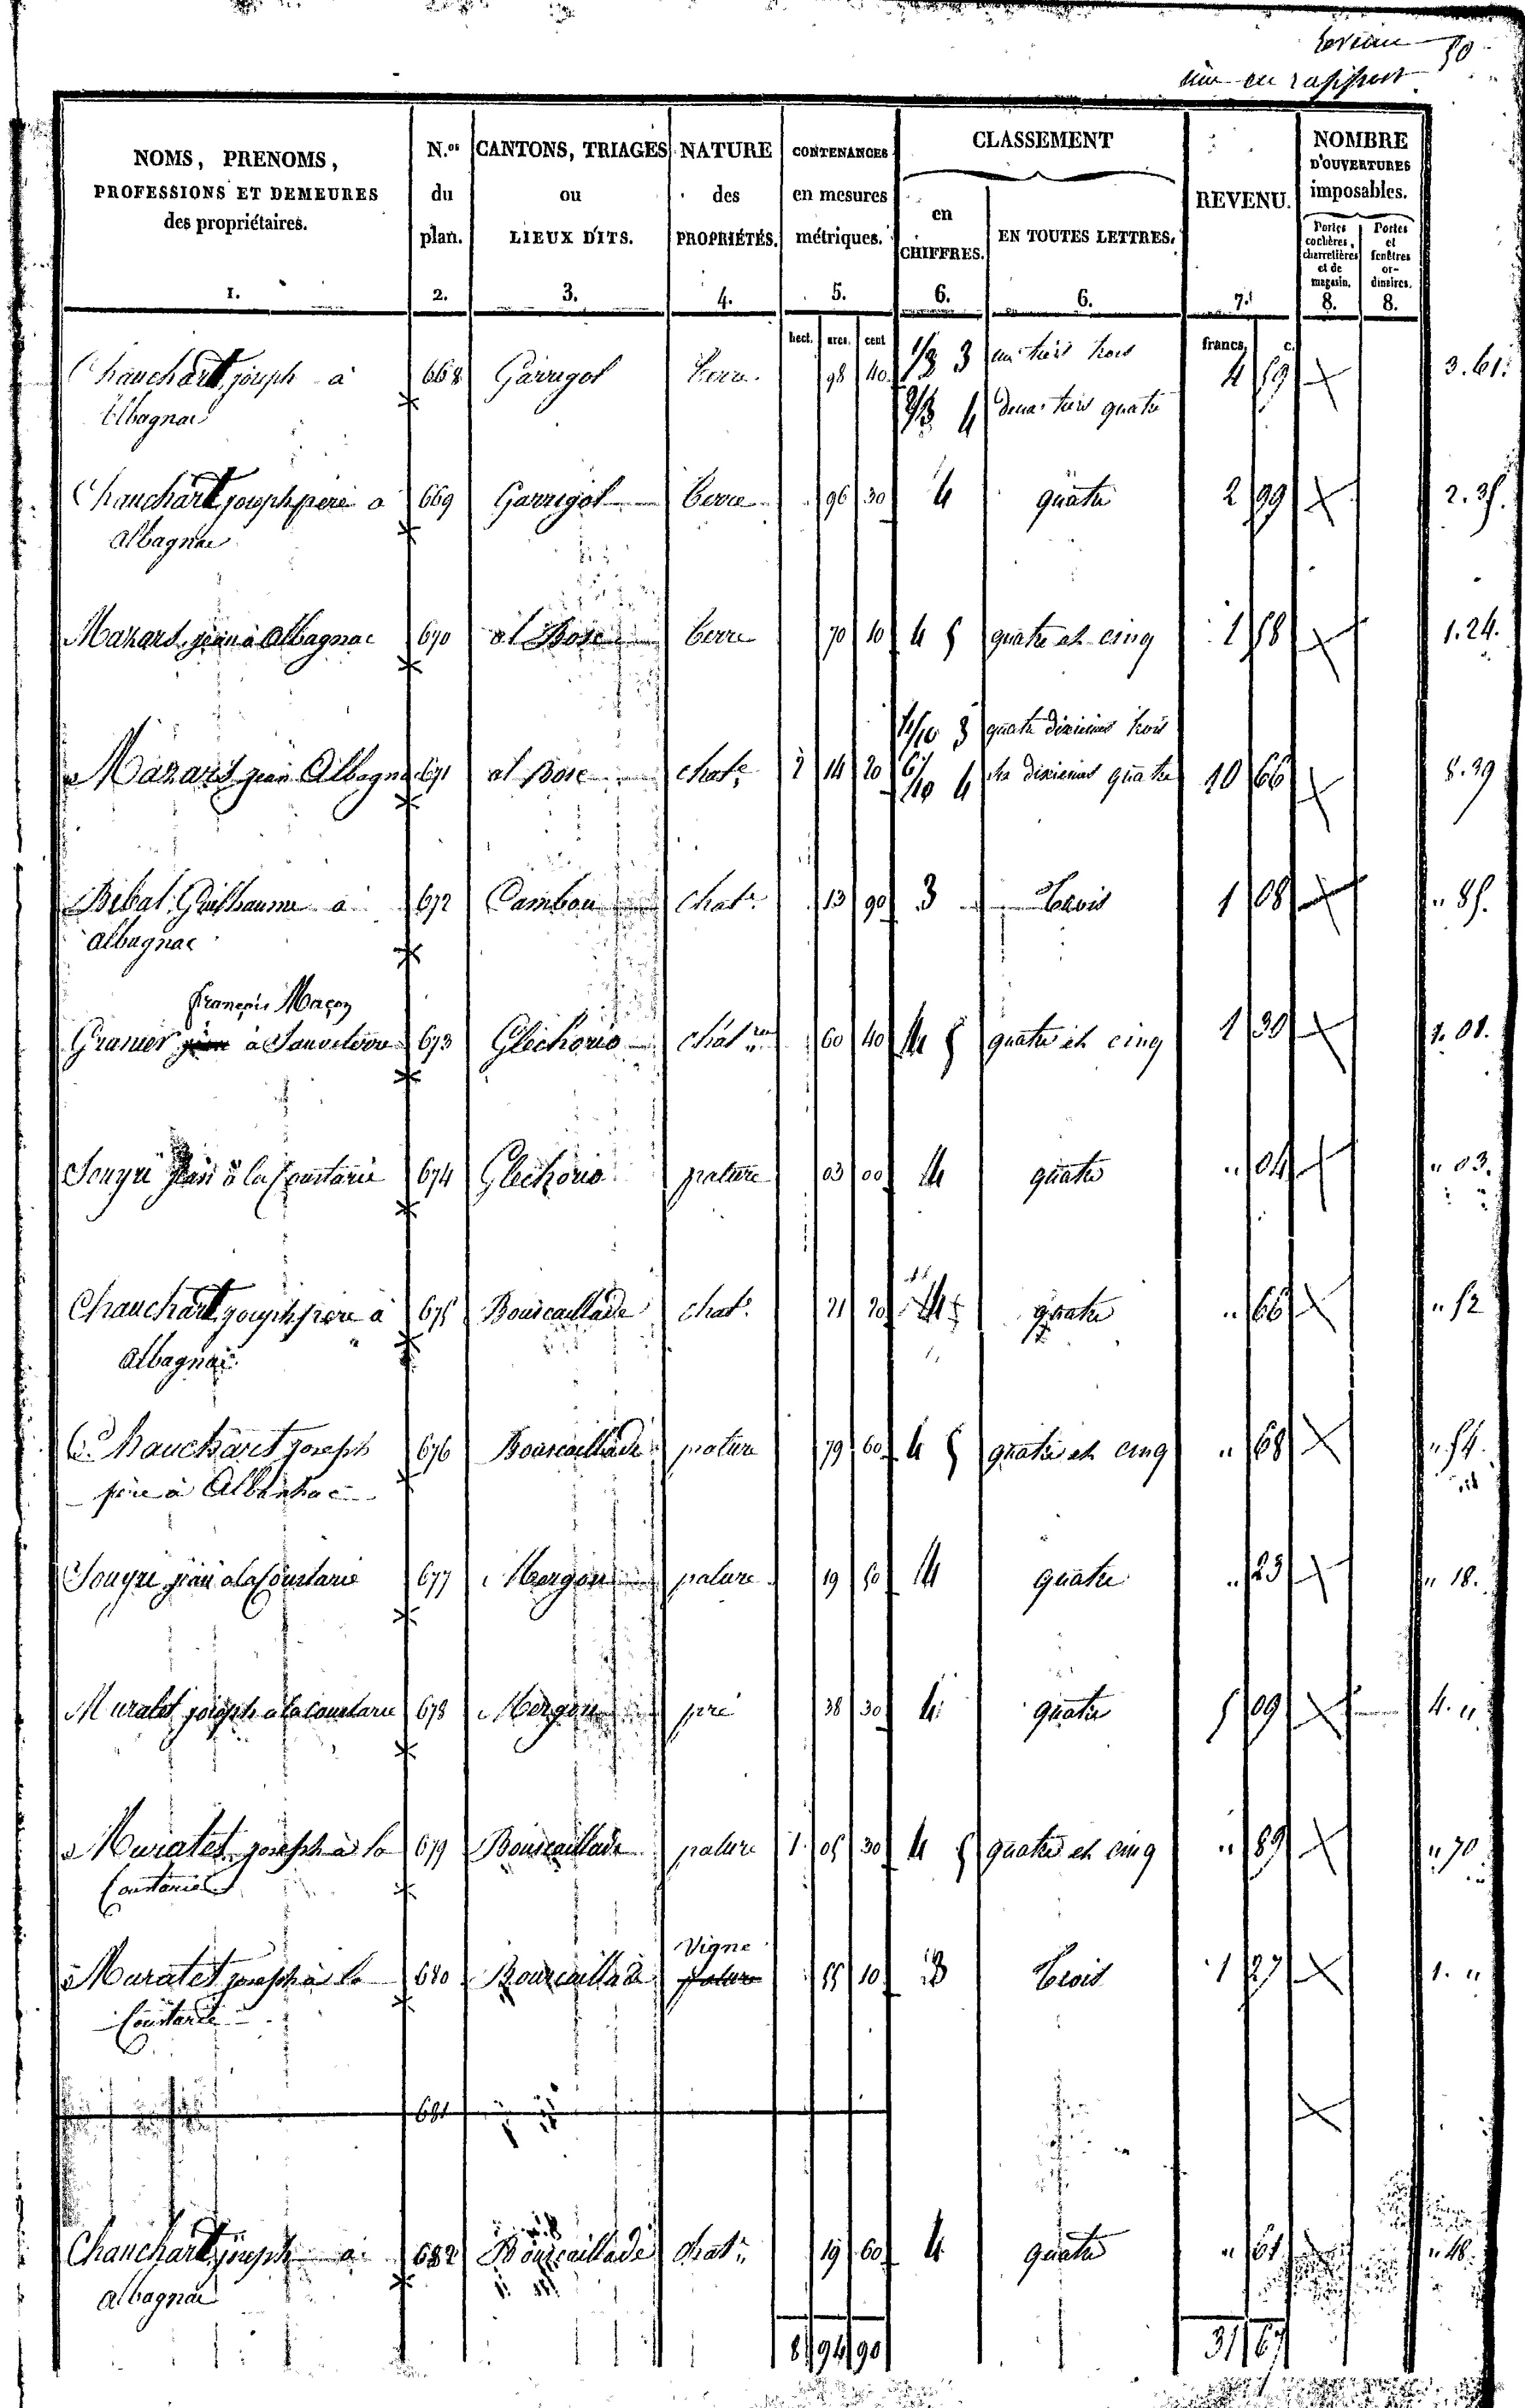 50
mis en rapport
NOMS, PRENOMS, PROFESSIONS ET DEMEURES des propriétaires. 1.
N.os du plan. 2.
CANTONS, TRIAGES ou LIEUX DITS. 3.
NATURE des PROPRIÉTÉS. 4.
CONTENANCES en mesures métriques. 5.
CLASSEMENT
en CHIFFRES. 6.
EN TOUTES LETTRES. 6.
REVENU. 7.
NOMBRE D'OUVERTURES imposables.
Portes cochères, charretières et de magasin. 8.
Portes et fenêtres ordinaires. 8.
hect. ares. cent
francs. c.
Chauchart joseph à 668 Garrigol terre 98 40 1/3 3 un tiers trois 4 59 3.61.
albagnac 2/3 4 deux tiers quatre
Chauchart joseph pere a 669 Garrigol terre 96 30 4 quatre 2 99 2.35.
albagnac
Mazars jean à albagnac 670 al Bosc terre 70 10 4 5 quatre et cinq 1 58 1.24.
4/10 3 quatre dixiemes trois
Mazars jean Albagnac 671 al Bosc chat.e 2 14 20 6/10 4 six dixiemes quatre 10 66 8.39
Bibal Guilhaume a 672 Cambou chat.e 13 90 3 trois 1 08 " 85.
albagnac
françois Maçon
Granier jean à Sauveterre 673 Glechorio chat.re 60 40 4 5 quatre et cinq 1 30 1.01.
Souyri jean à la Coustarie 674 Glechorio pature 03 00 4 quatre " 04 " 03.
Chauchart joseph pere à 675 Bouscaillade chat.e 21 20 4 quatre " 66 " 52
albagnac
Chauchart joseph 676 Bouscaillade pature 79 60 4 5 quatre et cinq " 68 " 54.
père à Albanhac
Souyri jean a la Coustarie 677 Mergou pature 19 50 4 quatre " 23 " 18.
Muratet joseph a la Coustarie 678 Mergou pré 38 30 4 quatre 5 09 4. "
Muratet joseph à la 679 Bouscaillade pature 1 05 30 4 5 quatre et cinq " 89 " 70
Coustarie
Vigne
Muratet joseph à la 680 Bouscaillade pature 55 10 3 trois 1 27 1. "
Coustarie
681
Chauchart joseph a 682 Bouscaillade chat.e 19 60 4 quatre " 61 " 48.
albagnac
8 94 90 31 67